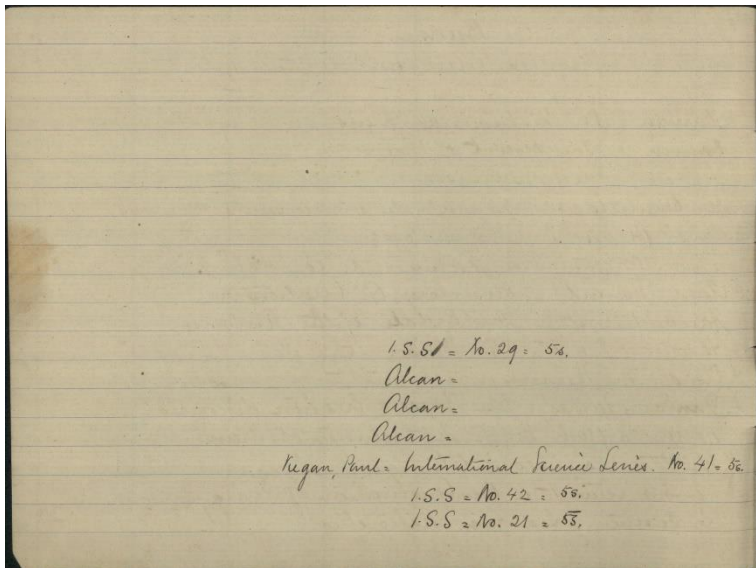 I.S.S. = No. 29 = 5s.
Alcan =
Alcan =
Alcan =
Kegan, Paul = International Science Series. No. 41 = 5s.
I.S.S = No. 42 = 5s.
I.S.S = No. 21 = 5s.